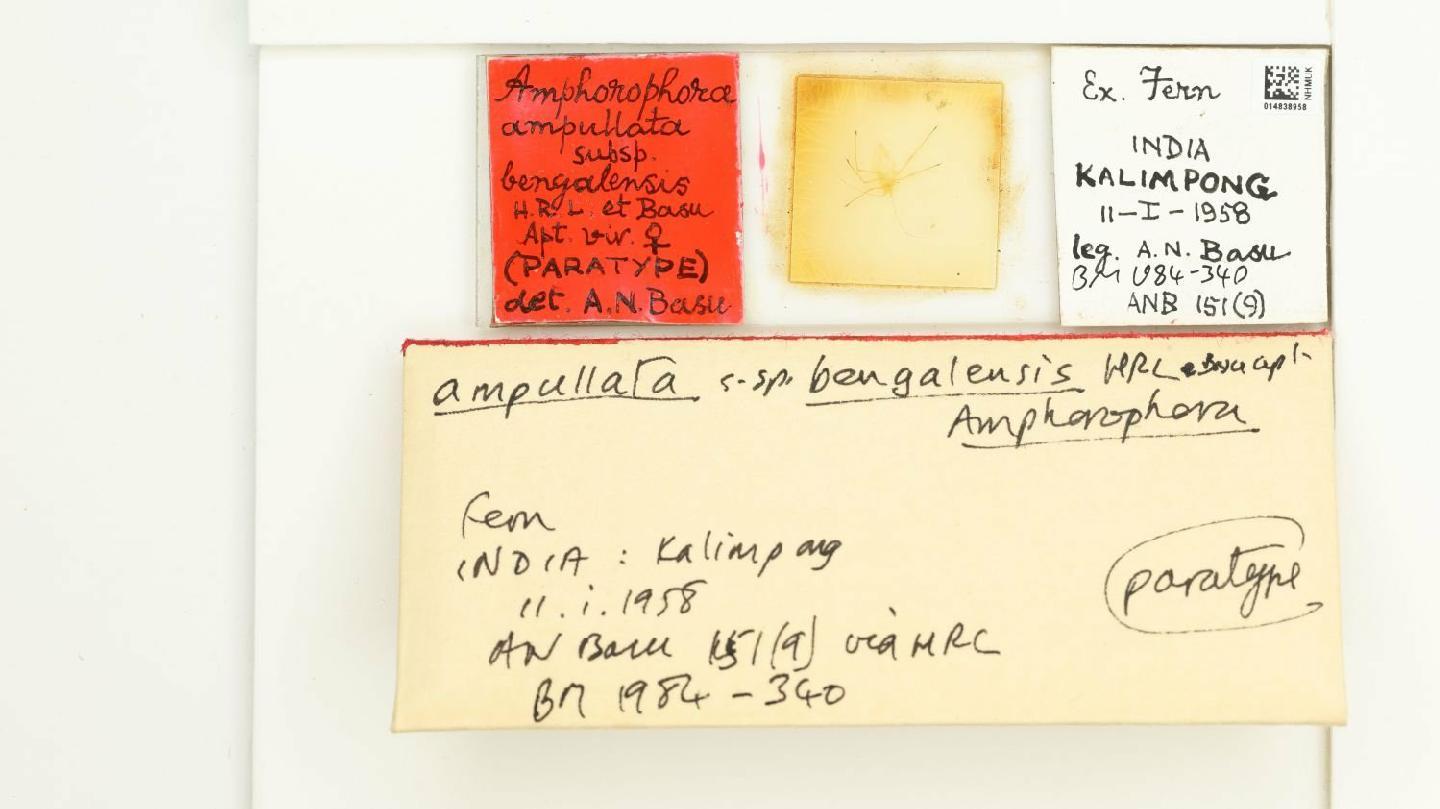 Amphorophora
ampullata
subsp.
bengalensis
H.R.L. et Basu
Apt. viv. ♀
(PARATYPE)
det. A.N. Basu
Ex. Fern
NHMUK
014838958
INDIA
KALIMPONG
11-I-1958
leg. A.N. Basu
BM 1984-340
ANB 151(9)
ampullata s-sp. bengalensis HRL & Basu apt.
Amphorophora
Fern
INDIA : Kalimpong
11.i.1958
AN Basu 151(9) via HRL
BM 1984-340
paratype